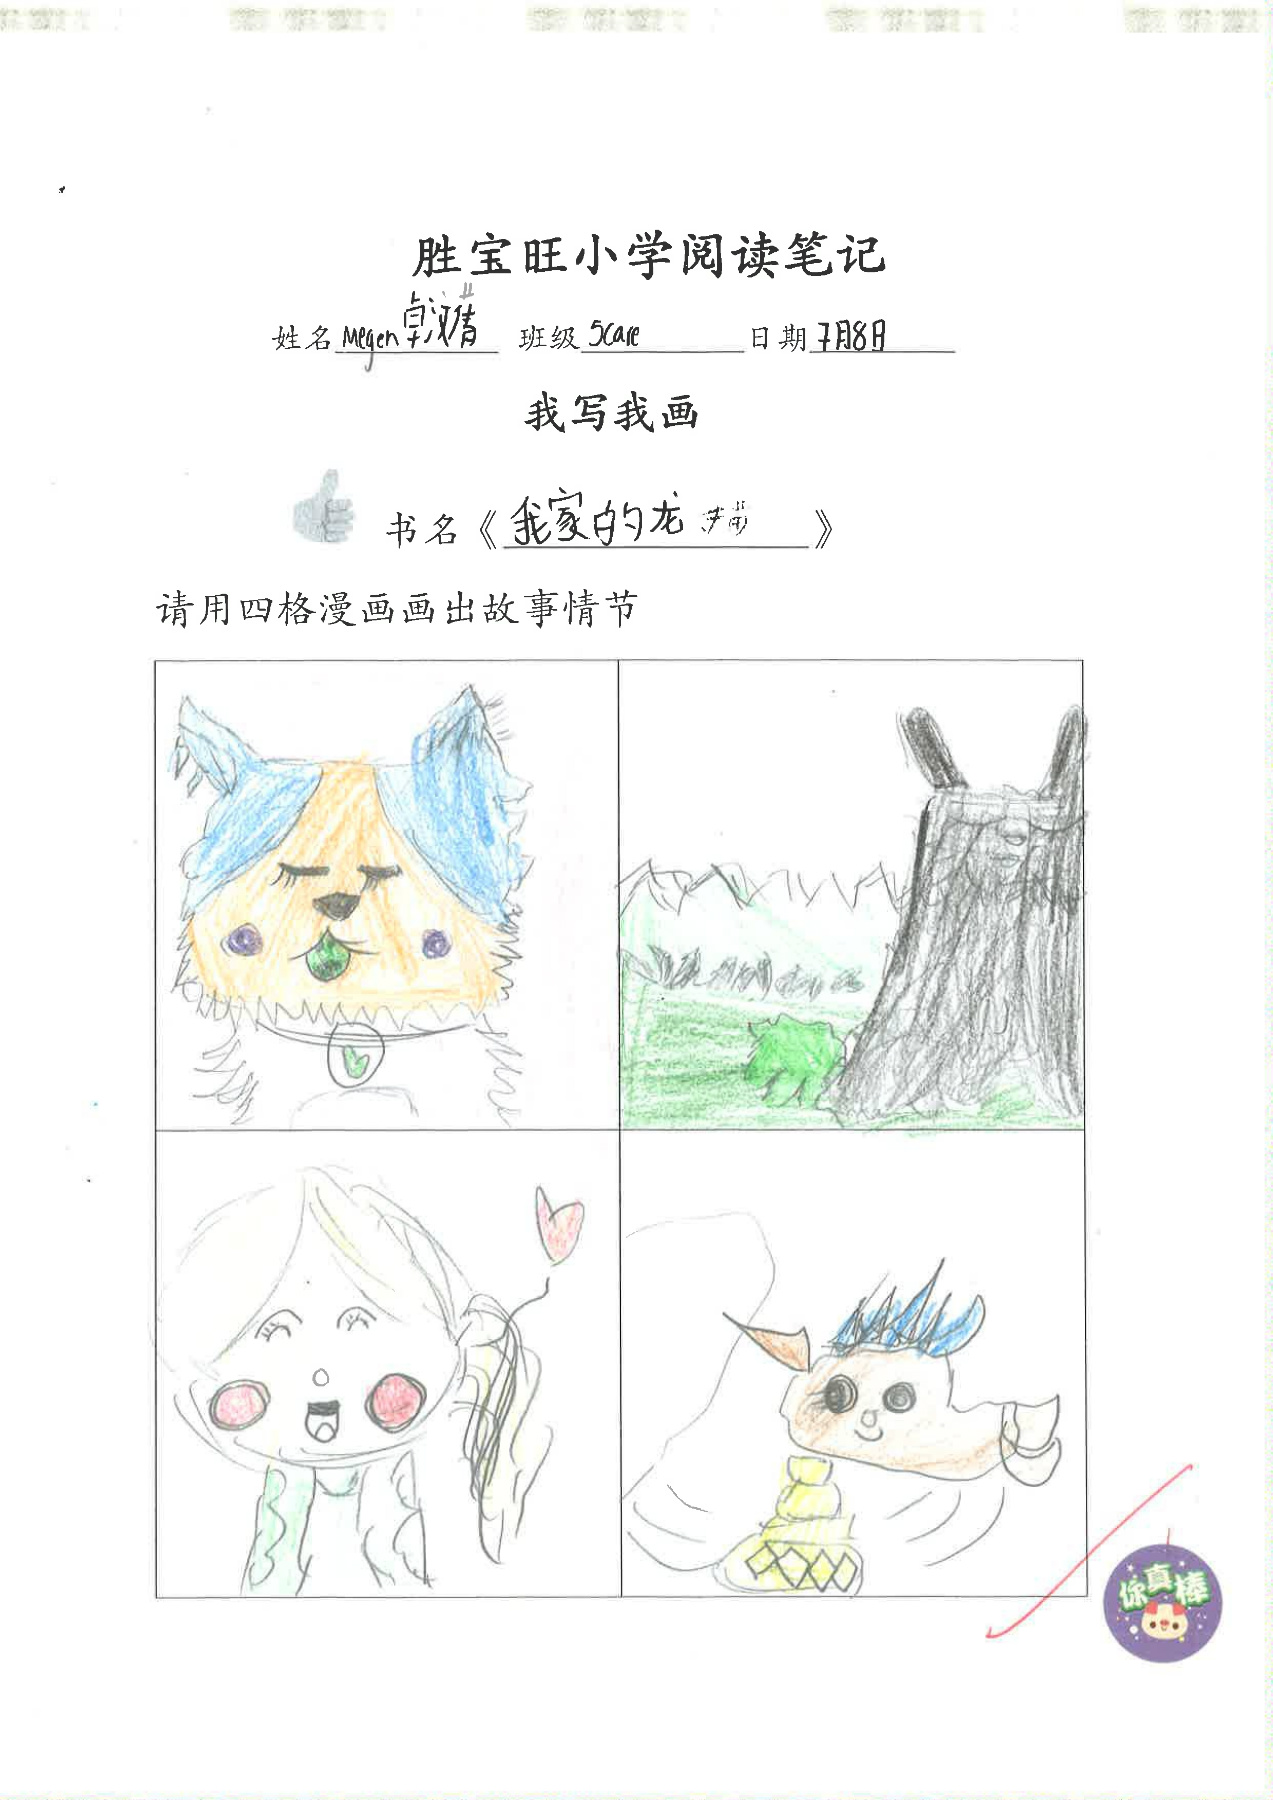 胜宝旺小学阅读笔记
姓名 Megen 卓汉清 班级 5Care 日期 7月8日
我写我画
书名《我家的龙》
请用四格漫画画出故事情节
你真棒